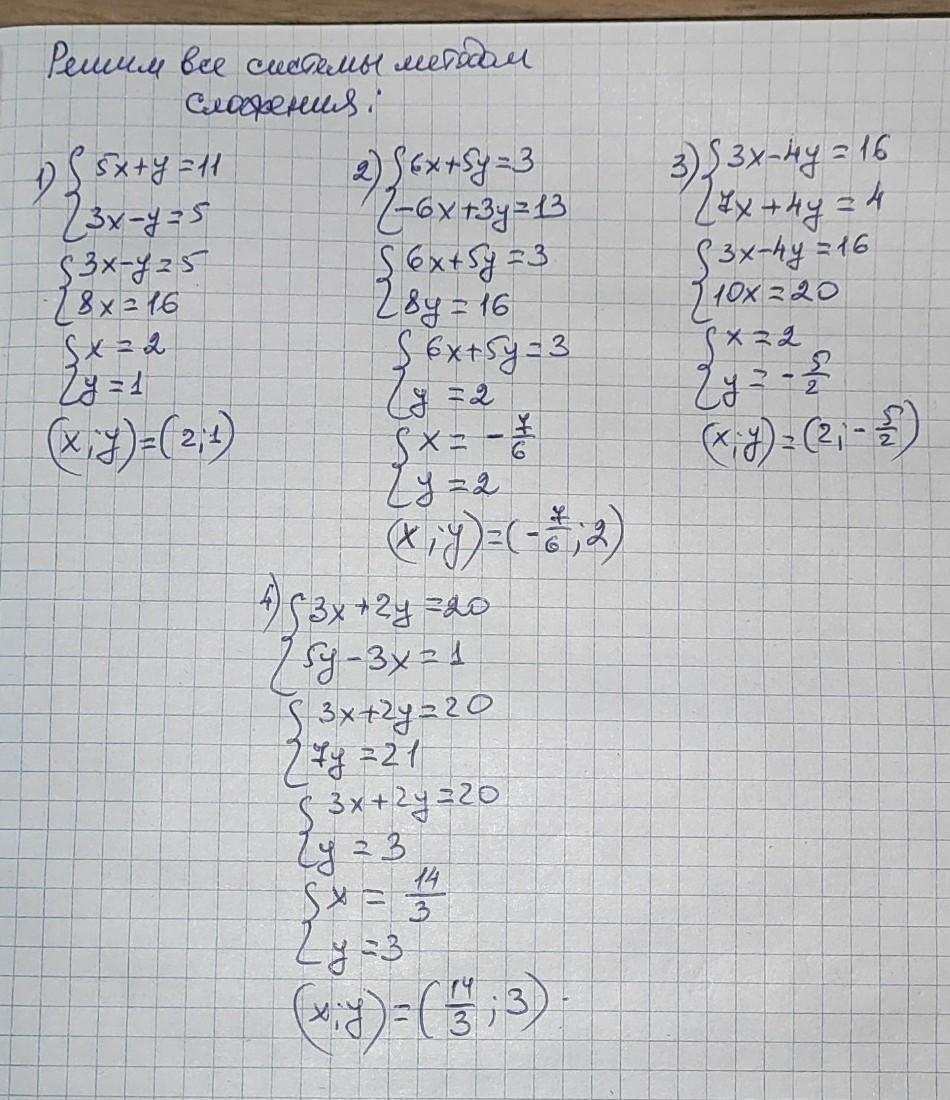 Решим все системы методом
сложения:
1) {5x+y=11
{3x-y=5
{3x-y=5
{8x=16
{x=2
{y=1
(x;y)=(2;1)
2) {6x+5y=3
{-6x+3y=13
{6x+5y=3
{8y=16
{6x+5y=3
{y=2
{x=-7/6
{y=2
(x;y)=(-7/6;2)
3) {3x-4y=16
{7x+4y=4
{3x-4y=16
{10x=20
{x=2
{y=-5/2
(x;y)=(2;-5/2)
4) {3x+2y=20
{5y-3x=1
{3x+2y=20
{7y=21
{3x+2y=20
{y=3
{x=14/3
{y=3
(x;y)=(14/3;3).